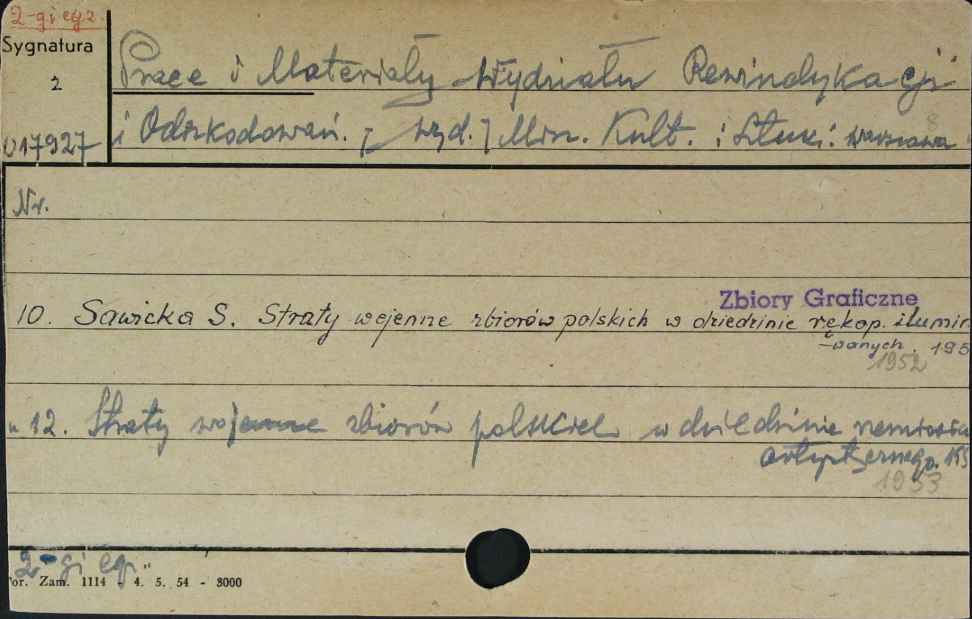 2-gi egz.
Sygnatura
2
U17927
Prace i Materiały Wydziału Rewindykacji
i Odszkodowań. [wyd.] Min. Kult. i Sztuki. Warszawa
Nr.
Zbiory Graficzne
10. Sawicka S. Straty wojenne zbiorów polskich w dziedzinie rękop. ilumin
-wanych. 195
1952
" 12. Straty wojenne zbiorów polskich w dziedzinie rzemiosła
artystycznego. 195
1953
2-gi eg. "
or. Zam. 1114 - 4. 5. 54 - 3000